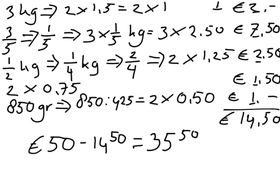 3 kg ⇒ 2 x 1,5 = 2 x 1 1 € 2.-
3/5 ⇒ 1/5 ⇒ 3 x 1/5 kg = 3 x 2.50 € 7,50
1/2 kg ⇒ 1/4 kg ⇒ 2/4 ⇒ 2 x 1,25 € 2.50
2 x 0,75 € 1,50
850 gr ⇒ 850:425 = 2 x 0,50 € 1.-
€ 14,50
€ 50 - 14 50 = 35 50